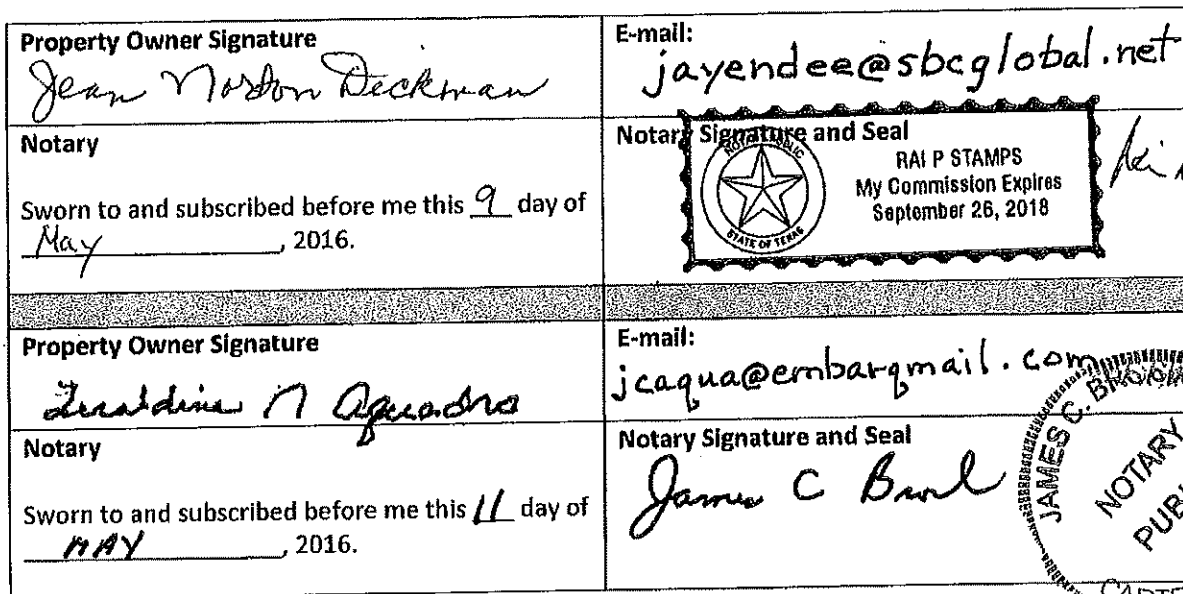 Property Owner Signature
Jean Norton Deckman
E-mail:
jayendee@sbcglobal.net
Notary
Sworn to and subscribed before me this 9 day of
May, 2016.
Notary Signature and Seal
NOTARY PUBLIC
STATE OF TEXAS
RAI P STAMPS
My Commission Expires
September 26, 2018
Property Owner Signature
Geraldine N Aquadro
E-mail:
jcaqua@embarqmail.com
Notary
Sworn to and subscribed before me this 11 day of
MAY, 2016.
Notary Signature and Seal
James C
JAMES C.
NOTARY